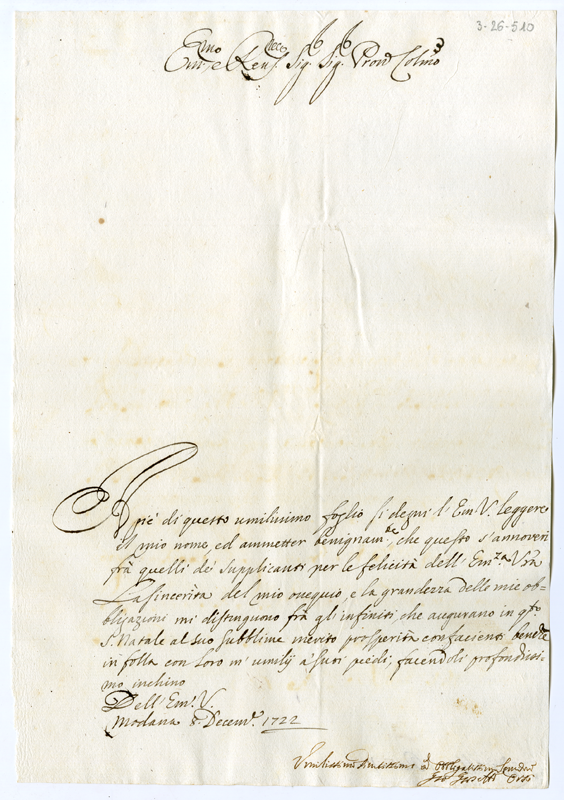 3-26-510
Em.mo e Reu.mo Sig.r Sig.r Pron Colmo
A piè di questo umilissimo foglio si degni l'Em.V. leggere
il mio nome, ed ammetter benignam.te, che questo s'annoveri
frà quelli dei supplicanti per le felicità dell'Em.za V.ra
La sincerità del mio ossequio, e la grandezza delle mie ob=
bligazioni mi distinguono frà gl'infiniti che augurano in q.to
S. Natale al suo subblime merito prosperità confacienti bench
in folla con loro m'umilij a' suoi piedi, facendoli profondissi=
mo inchino
Dell'Em.a V.
Modana 8. Decem.e 1722
Umilissimo Devotissimo ed Obligatissimo Servidor
Gio Orsi